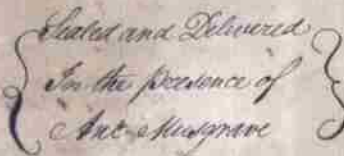 Sealed and Delivered
In the presence of
Ant Musgrave